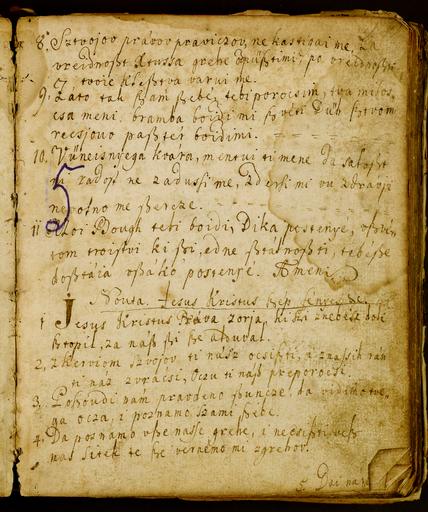 8. Sztvojov právov praviczov, ne kastigai me, za
vreidnoszt Xtussa grehe odpüszti mi, po vreidnoszti
tvoie kleisztva varui me.
9. Zato tak szam szebé, tebi porocsim, tva milos-
csa meni, bramba boidi mi szvéti Düh sztvom
recsjouv paszter boidi mi.
10. V vüneisnyega kvára, mentui ti mene da saloszt
radoszt ne zadussi me, zdersi mi vu zdravji
ne me szercze.
11 Moi Bough tebi boidi, Dika postenye, vszvé-
tom troistvi ki szi, edne sztálnoszti, tebé sze
dosztája vszáko postenye. Amen.
Nouta. Jesus Kristus
1 Jesus Kristus Práva zorja, ki szi znebesz doli
sztopil, za nasz szi
2, zkervjom szvojov ti nasz ocsiszti, i znassih rán
ti nasz zvracsi, Oczu ti nasz preporocsi.
3. Poszvidi nam pravdeno szuncze, da vidimo tve-
ga ocza, i poznamo szami szebe.
4. Da poznamo vsze nasse grehe, i necsiszti vesz
nas sitek te sze vernémo mi zgrehov.
5. Dai nam
5